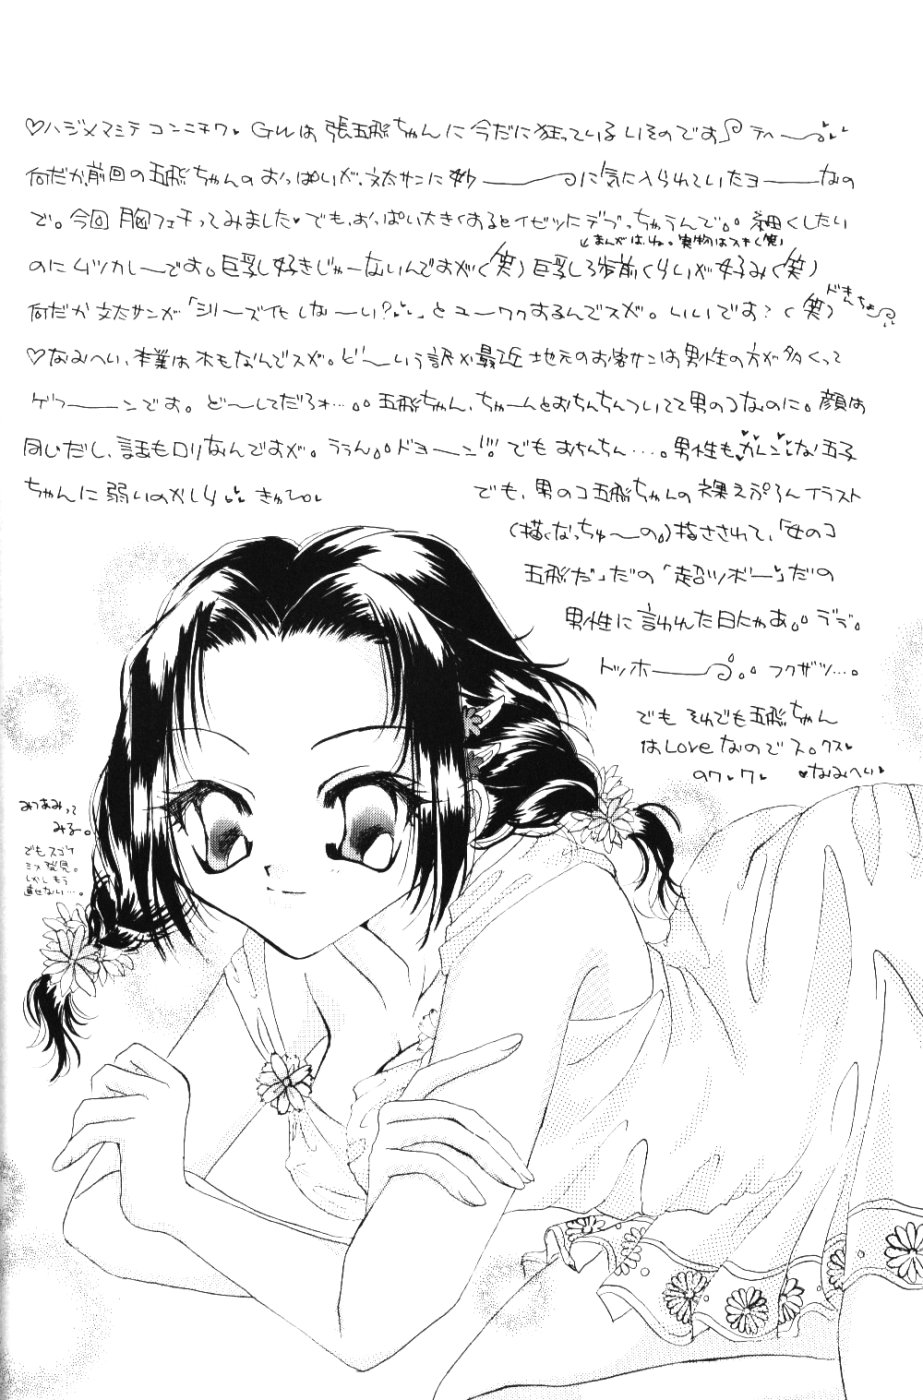 ♡ハジメマシテコンニチワ♥ GWは張五飛ちゃんに今だに狂っているいそのです テヘーー
何だか前回の五飛ちゃんのおっぱいが、文太サンに妙ーーに気に入られていたヨーーなの
で。今回胸フェチってみました♥でも、おっぱい大きくするとイゼッにデブっちゃうんで。。細くしたい
↙まんがはね。実物はスキ(笑)
のにムツカしーです。巨乳し好きじゃーないんですが(笑)巨乳し3歩前くらいが好み(笑)
何だか文太サンが「シリーズ化しなーい?♥♥」とユーワクするんでスガ。いいです?(笑)
♡なみへい、本業はホモなんでスガ。どーいう訳か最近地元のお客サンは男性の方が多くって
ゲフーーンです。どーしてだろォ…。。五飛ちゃん、ちゃーんとおちんちんついてて男のコなのに。顔は
同じだし、話もロリなんですが。ううん。。ドヨーン!!! でもおちんちん…。男性もカレンな五子
ちゃんに弱いのかしら♥♥ きゅぴ。
でも、男のコ五飛ちゃんの裸えぷろんイラスト
(描くなっちゅーの。)描さされて、「女のコ
五飛だ」だの「超ツボー」だの
男性に言われた日にゃあ。。デデ。
トッホーー。。フクザツ…。
でもそれでも五飛ちゃん
はLoveなのでス。クス♥
のワ♥ワ♥ ♥なみへい♥
みつあみって
みるー。
でもスゴイ
ミス発見。
しかしもう
直せない…。